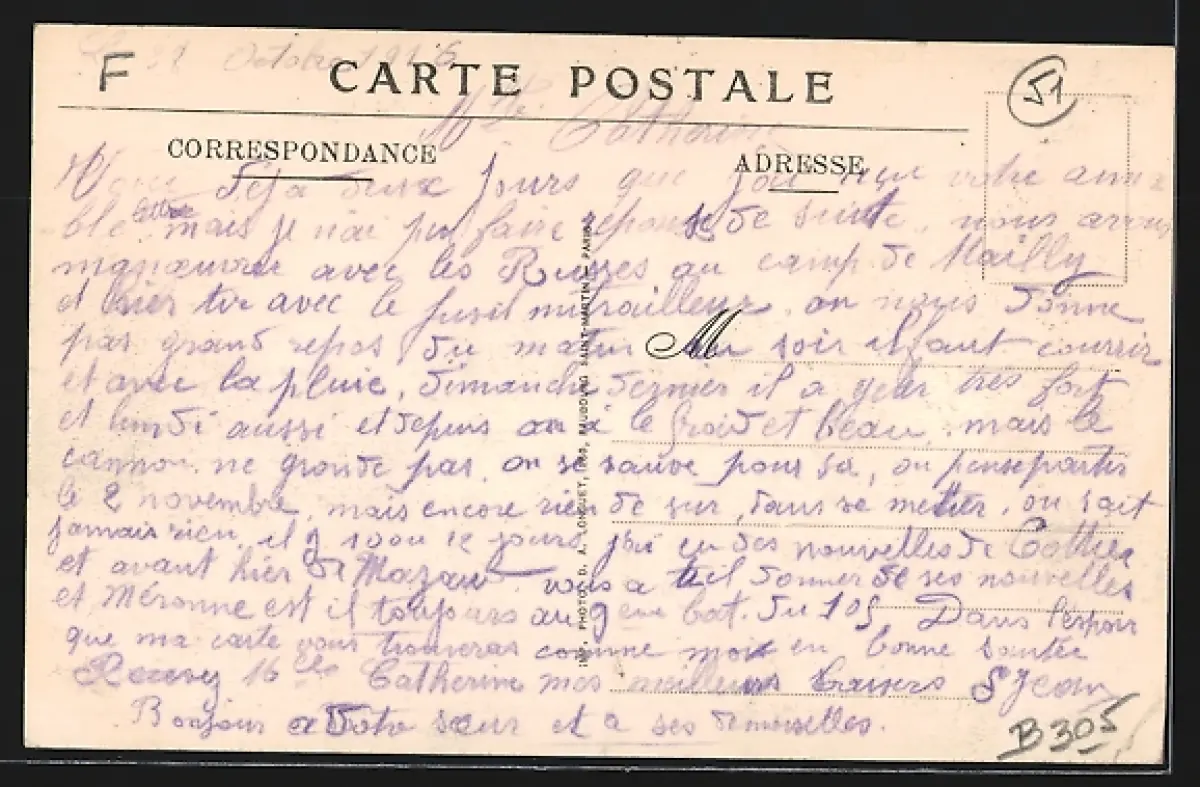 F
31 Octobre 1916
CARTE POSTALE
51
Mlle Catherine
CORRESPONDANCE
ADRESSE
Voici deja deux jours que jai reçu votre aima
ble lettre mais je n'ai pu faire réponse de suite, nous avons
manœuvrer avec les Russes au camp de Mailly
et hier tir avec le fusil mitrailleur, on nous donne
pas grand repos, du matin au soir il faut courrir
M
et avec la pluie, dimanche dernier il a geler tres fort
et lundi aussi et depuis on à le froid et beau, mais le
cannon ne gronde pas, on se sauve pour sa, on pense partir
le 2 novembre, mais encore rien de sur, dans se metier, on sait
jamais rien, il y 10 ou 12 jours jai eu des nouvelles de
et avant hier de Mazau vous a til donner de ses nouvelles
et Méronne est il toujours au 9eme bat. du 105 Dans l'espoir
que ma carte vous trouveras comme moi en bonne santée
Recevez Mlle Catherine mes meilleurs baisers S Jean
Bonjour a votre sœur et a ses demoiselles.
IMP. PHOTO D. A. LONGUET, FAUBOURG SAINT-MARTIN, PARIS
B305